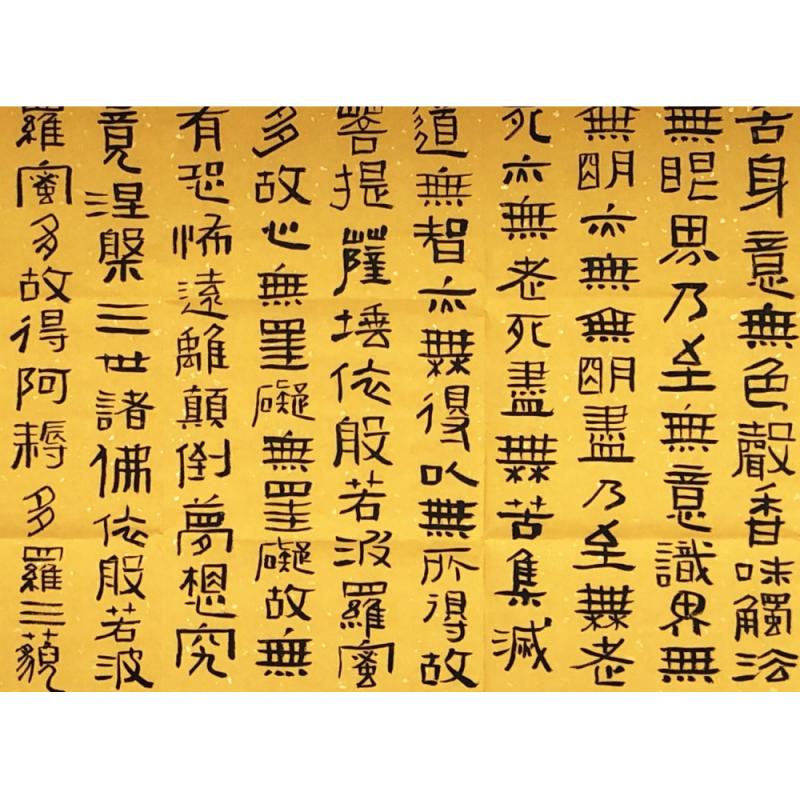 舌身意無色聲香味觸法
無眼界乃至無意識界無
無明亦無無明盡乃至無老
死亦無老死盡無苦集滅
道無智亦無得以無所得故
菩提薩埵依般若波羅蜜
多故心無罣礙無罣礙故無
有恐怖遠離顛倒夢想究
竟涅槃三世諸佛依般若波
羅蜜多故得阿耨多羅三藐